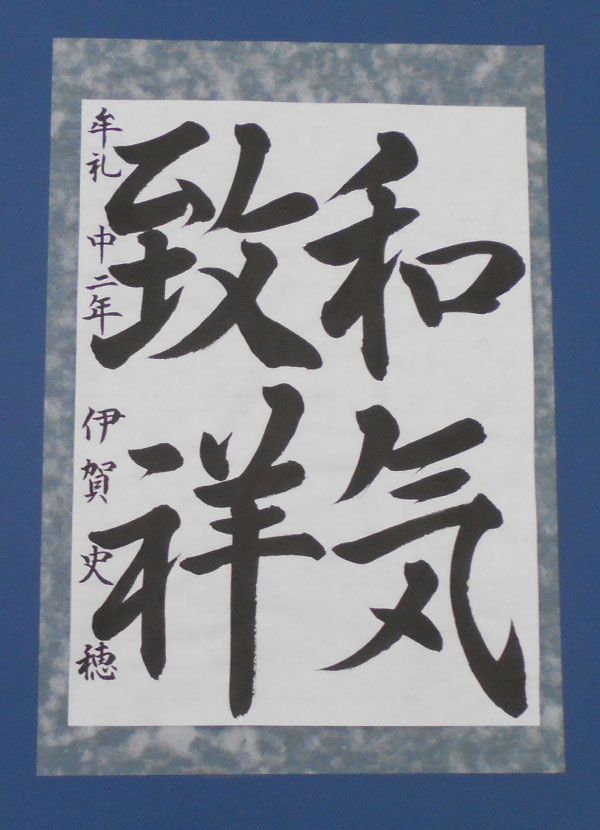 和気
致祥
牟礼 中二年 伊賀史穂